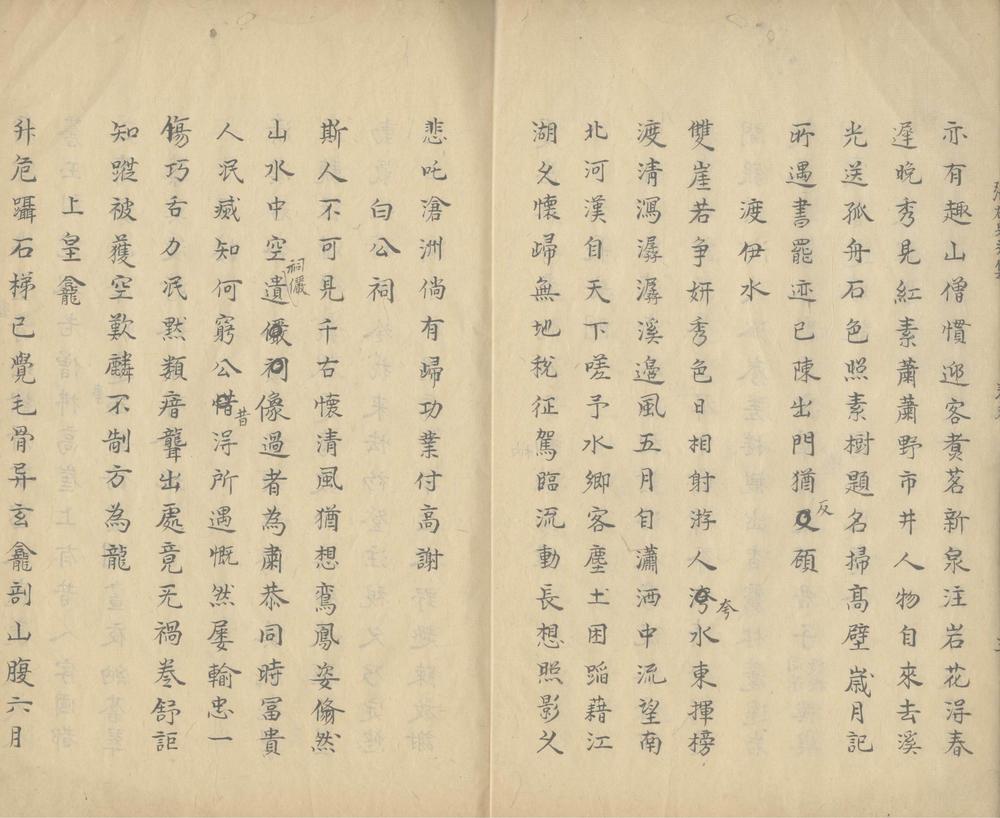 亦有趣山僧慣迎客煑茗新泉注岩花浔春
遲晚秀見紅素蕭蕭野市井人物自來去溪
光送孤舟石色照素樹題名掃高壁嵗月記
所遇書罷迹已陳出門猶反顧
渡伊水
雙崖若争妍秀色日相射游人夸水東揮榜
渡清瀉潺潺溪邉風五月自瀟洒中流望南
北河漢自天下嗟予水鄉客塵土困蹈藉江
湖久懷歸無地稅征駕臨流動長想照影久
悲吒滄洲倘有歸功業付高謝
白公祠
斯人不可見千古懷清風猶想鸞鳳姿翛然
山水中空遺祠儼像過者為肅恭同時冨貴
人泯滅知何窮公昔浔所遇慨然屡輸忠一
傷巧舌力泯默類瘖聾出處竟无禍卷舒詎
知蹤被獲空歎麟不制方為龍
上皇龕
升危躡石梯已覺毛骨异玄龕剖山腹六月